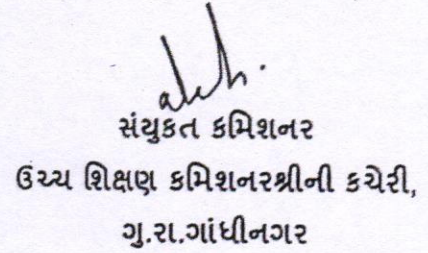 સંયુકત કમિશનર
ઉચ્ચ શિક્ષણ કમિશનરશ્રીની કચેરી,
ગુ.રા.ગાંધીનગર